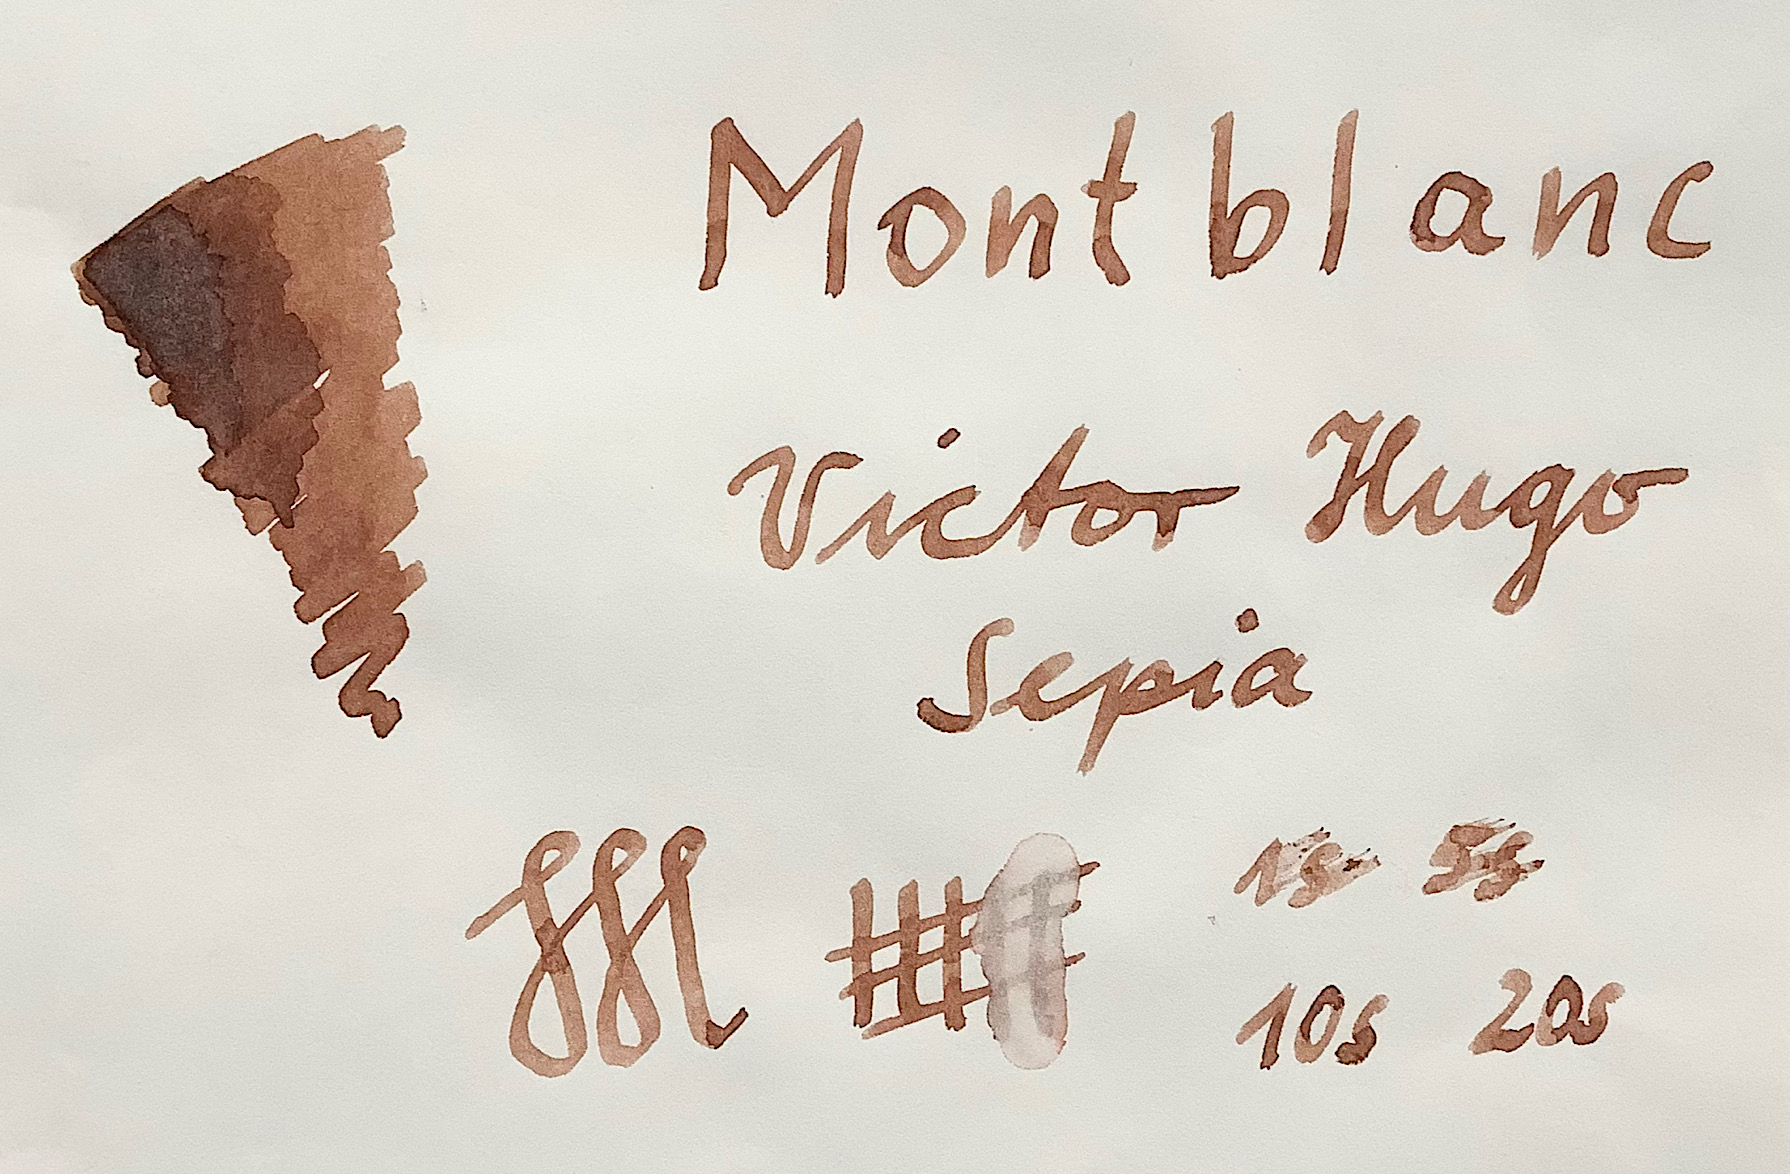 Montblanc
Victor Hugo
Sepia
1s 5s
10s 20s